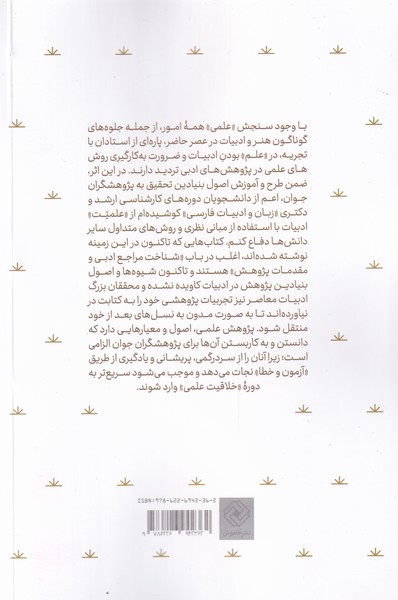 با وجود سنجش «علمی» همهٔ امور، از جمله جلوه‌های
گوناگون هنر و ادبیات در عصر حاضر، پاره‌ای از استادان با
تجربه، در «علم» بودنِ ادبیات و ضرورت به‌کارگیری روش
های علمی در پژوهش‌های ادبی تردید دارند. در این اثر،
ضمن طرح و آموزش اصول بنیادین تحقیق به پژوهشگران
جوان، اعم از دانشجویان دوره‌های کارشناسی ارشد و
دکتری «زبان و ادبیات فارسی» کوشیده‌ام از «علمیّت»
ادبیات با استفاده از مبانی نظری و روش‌های متداول سایر
دانش‌ها دفاع کنم. کتاب‌هایی که تاکنون در این زمینه
نوشته شده‌اند، اغلب در باب «شناخت مراجع ادبی و
مقدمات پژوهش» هستند و تاکنون شیوه‌ها و اصول
بنیادین پژوهش در ادبیات کاویده نشده و محققان بزرگ
ادبیات معاصر نیز تجربیات پژوهشی خود را به کتابت در
نیاورده‌اند تا به صورت مدون به نسل‌های بعد از خود
منتقل شود. پژوهش علمی، اصول و معیارهایی دارد که
دانستن و به کاربستن آن‌ها برای پژوهشگران جوان الزامی
است؛ زیرا آنان را از سردرگمی، پریشانی و یادگیری از طریق
«آزمون و خطا» نجات می‌دهد و موجب می‌شود سریع‌تر به
دورهٔ «خلاقیت علمی» وارد شوند.
ISBN: 978-622-6942-36-2